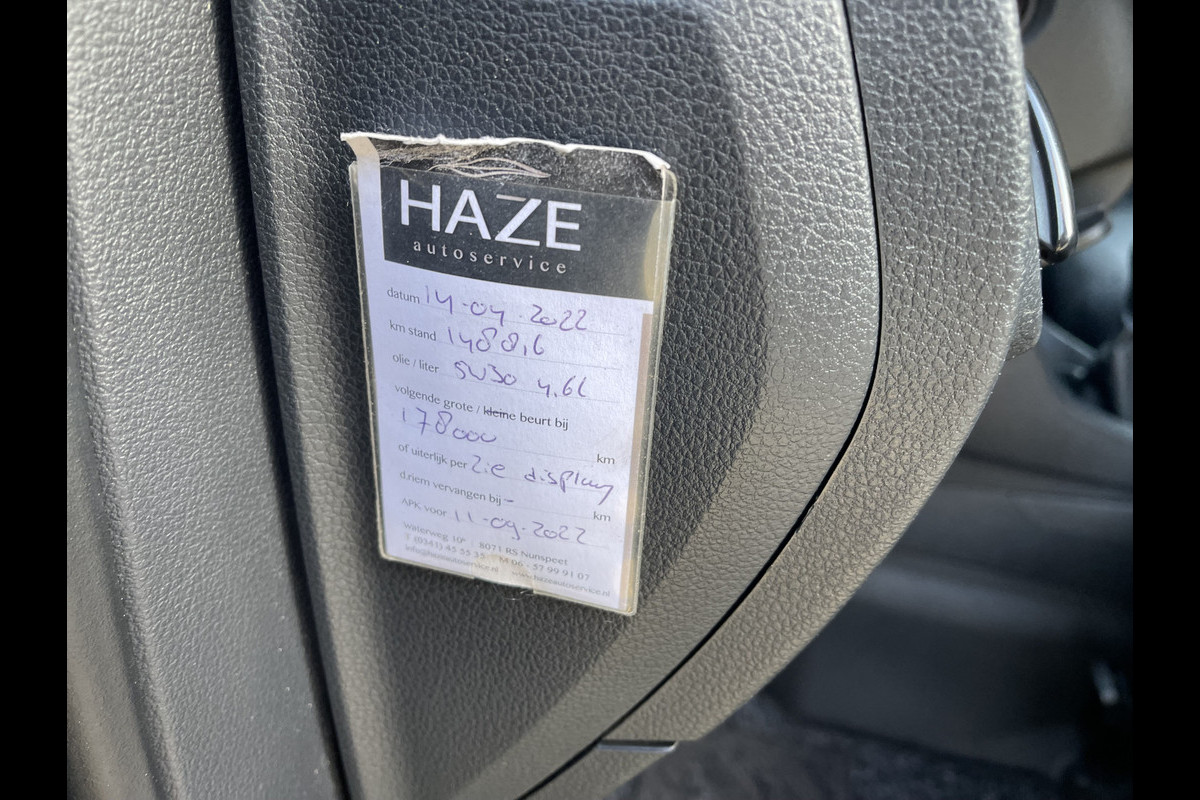 HAZE
autoservice
datum 14-04-2022
km stand 1488,6
olie / liter 5W30 4,6L
volgende grote / kleine beurt bij
178000 km
of uiterlijk per Zie display
d.riem vervangen bij - km
APK voor 11-09-2022
Waterweg 10 8071 RS Nunspeet
T (0341) 45 55 35 M 06 - 57 99 91 07
info@hazeautoservice.nl www.hazeautoservice.nl